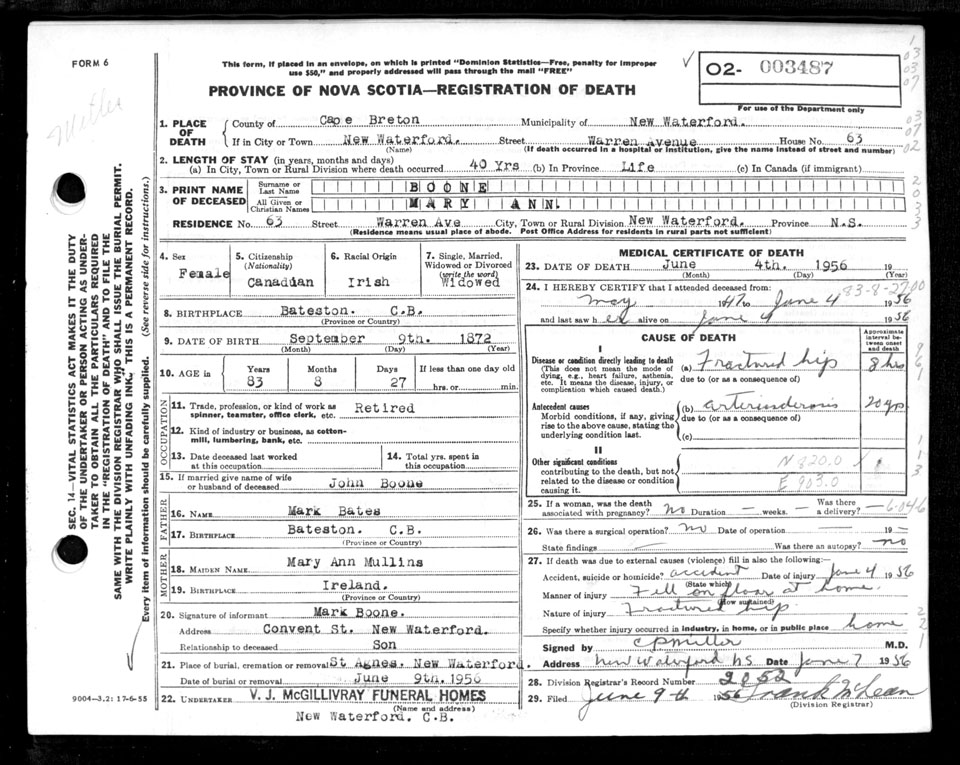 FORM 6
This form, if placed in an envelope, on which is printed "Dominion Statistics—Free, penalty for improper
use $50," and properly addressed will pass through the mail "FREE"
02- 003487
PROVINCE OF NOVA SCOTIA—REGISTRATION OF DEATH
For use of the Department only
Miller
1. PLACE OF DEATH
County of Cape Breton Municipality of New Waterford.
If in City or Town New Waterford. Street Warren Avenue House No. 63
(Name) (If death occurred in a hospital or institution, give the name instead of street and number)
2. LENGTH OF STAY (in years, months and days)
(a) In City, Town or Rural Division where death occurred 40 Yrs (b) In Province Life (c) In Canada (if immigrant)
3. PRINT NAME OF DECEASED
Surname or Last Name BOONE
All Given or Christian Names MARY ANN.
RESIDENCE No. 63 Street Warren Ave City, Town or Rural Division New Waterford. Province N.S.
(Residence means usual place of abode. Post Office Address for residents in rural parts not sufficient)
4. Sex
Female
5. Citizenship
(Nationality)
Canadian
6. Racial Origin
Irish
7. Single, Married, Widowed or Divorced
(write the word)
Widowed
8. BIRTHPLACE Bateston. C.B.
(Province or Country)
9. DATE OF BIRTH September 9th. 1872
(Month) (Day) (Year)
10. AGE in
Years Months Days If less than one day old
83 8 27 hrs. or min.
OCCUPATION
11. Trade, profession, or kind of work as
spinner, teamster, office clerk, etc. Retired
12. Kind of industry or business, as cotton-
mill, lumbering, bank, etc.
13. Date deceased last worked
at this occupation
14. Total yrs. spent in
this occupation
15. If married give name of wife
or husband of deceased John Boone
FATHER
16. NAME Mark Bates
17. BIRTHPLACE Bateston. C.B.
(Province or Country)
MOTHER
18. MAIDEN NAME Mary Ann Mullins
19. BIRTHPLACE Ireland.
(Province or Country)
20. Signature of informant Mark Boone.
Address Convent St. New Waterford.
Relationship to deceased Son
21. Place of burial, cremation or removal St Agnes. New Waterford.
Date of burial or removal June 9th. 1956
22. UNDERTAKER V. J. McGILLIVRAY FUNERAL HOMES
(Name and address)
New Waterford. C.B.
MEDICAL CERTIFICATE OF DEATH
23. DATE OF DEATH June 4th. 1956 19
(Month) (Day) (Year)
83-8-2700
24. I HEREBY CERTIFY that I attended deceased from:
May 1947 to June 4 1956
and last saw her alive on June 4 1956
CAUSE OF DEATH
Approximate interval between onset and death
I
Disease or condition directly leading to death
(This does not mean the mode of
dying, e.g., heart failure, asthenia,
etc. It means the disease, injury, or
complication which caused death.)
(a) Fractured hip 8 hrs
due to (or as a consequence of)
Antecedent causes
Morbid conditions, if any, giving
rise to the above cause, stating the
underlying condition last.
(b) arteriosclerosis 20 yrs
due to (or as a consequence of)
(c)
II
Other significant conditions
contributing to the death, but not
related to the disease or condition
causing it.
N 820.0
E 903.0
25. If a woman, was the death
associated with pregnancy? no Duration — weeks. — Was there a delivery? —
26. Was there a surgical operation? no Date of operation 19
State findings Was there an autopsy? no
27. If death was due to external causes (violence) fill in also the following:—
Accident, suicide or homicide? accident Date of injury June 4 1956
(State which)
Manner of injury Fell on floor at home
(How sustained)
Nature of injury Fractured hip
Specify whether injury occurred in industry, in home, or in public place home
Signed by C P Miller M.D.
Address New Waterford NS Date June 7 1956
28. Division Registrar's Record Number 2852
29. Filed June 9th 1956 Frank McLean
(Division Registrar)
SEC. 14—VITAL STATISTICS ACT MAKES IT THE DUTY
OF THE UNDERTAKER OR PERSON ACTING AS UNDER-
TAKER TO OBTAIN ALL THE PARTICULARS REQUIRED
IN THE "REGISTRATION OF DEATH" AND TO FILE THE
SAME WITH THE DIVISION REGISTRAR WHO SHALL ISSUE THE BURIAL PERMIT.
WRITE PLAINLY WITH UNFADING INK, THIS IS A PERMANENT RECORD.
Every item of information should be carefully supplied. (See reverse side for instructions.)
9004-3.2: 17-6-55